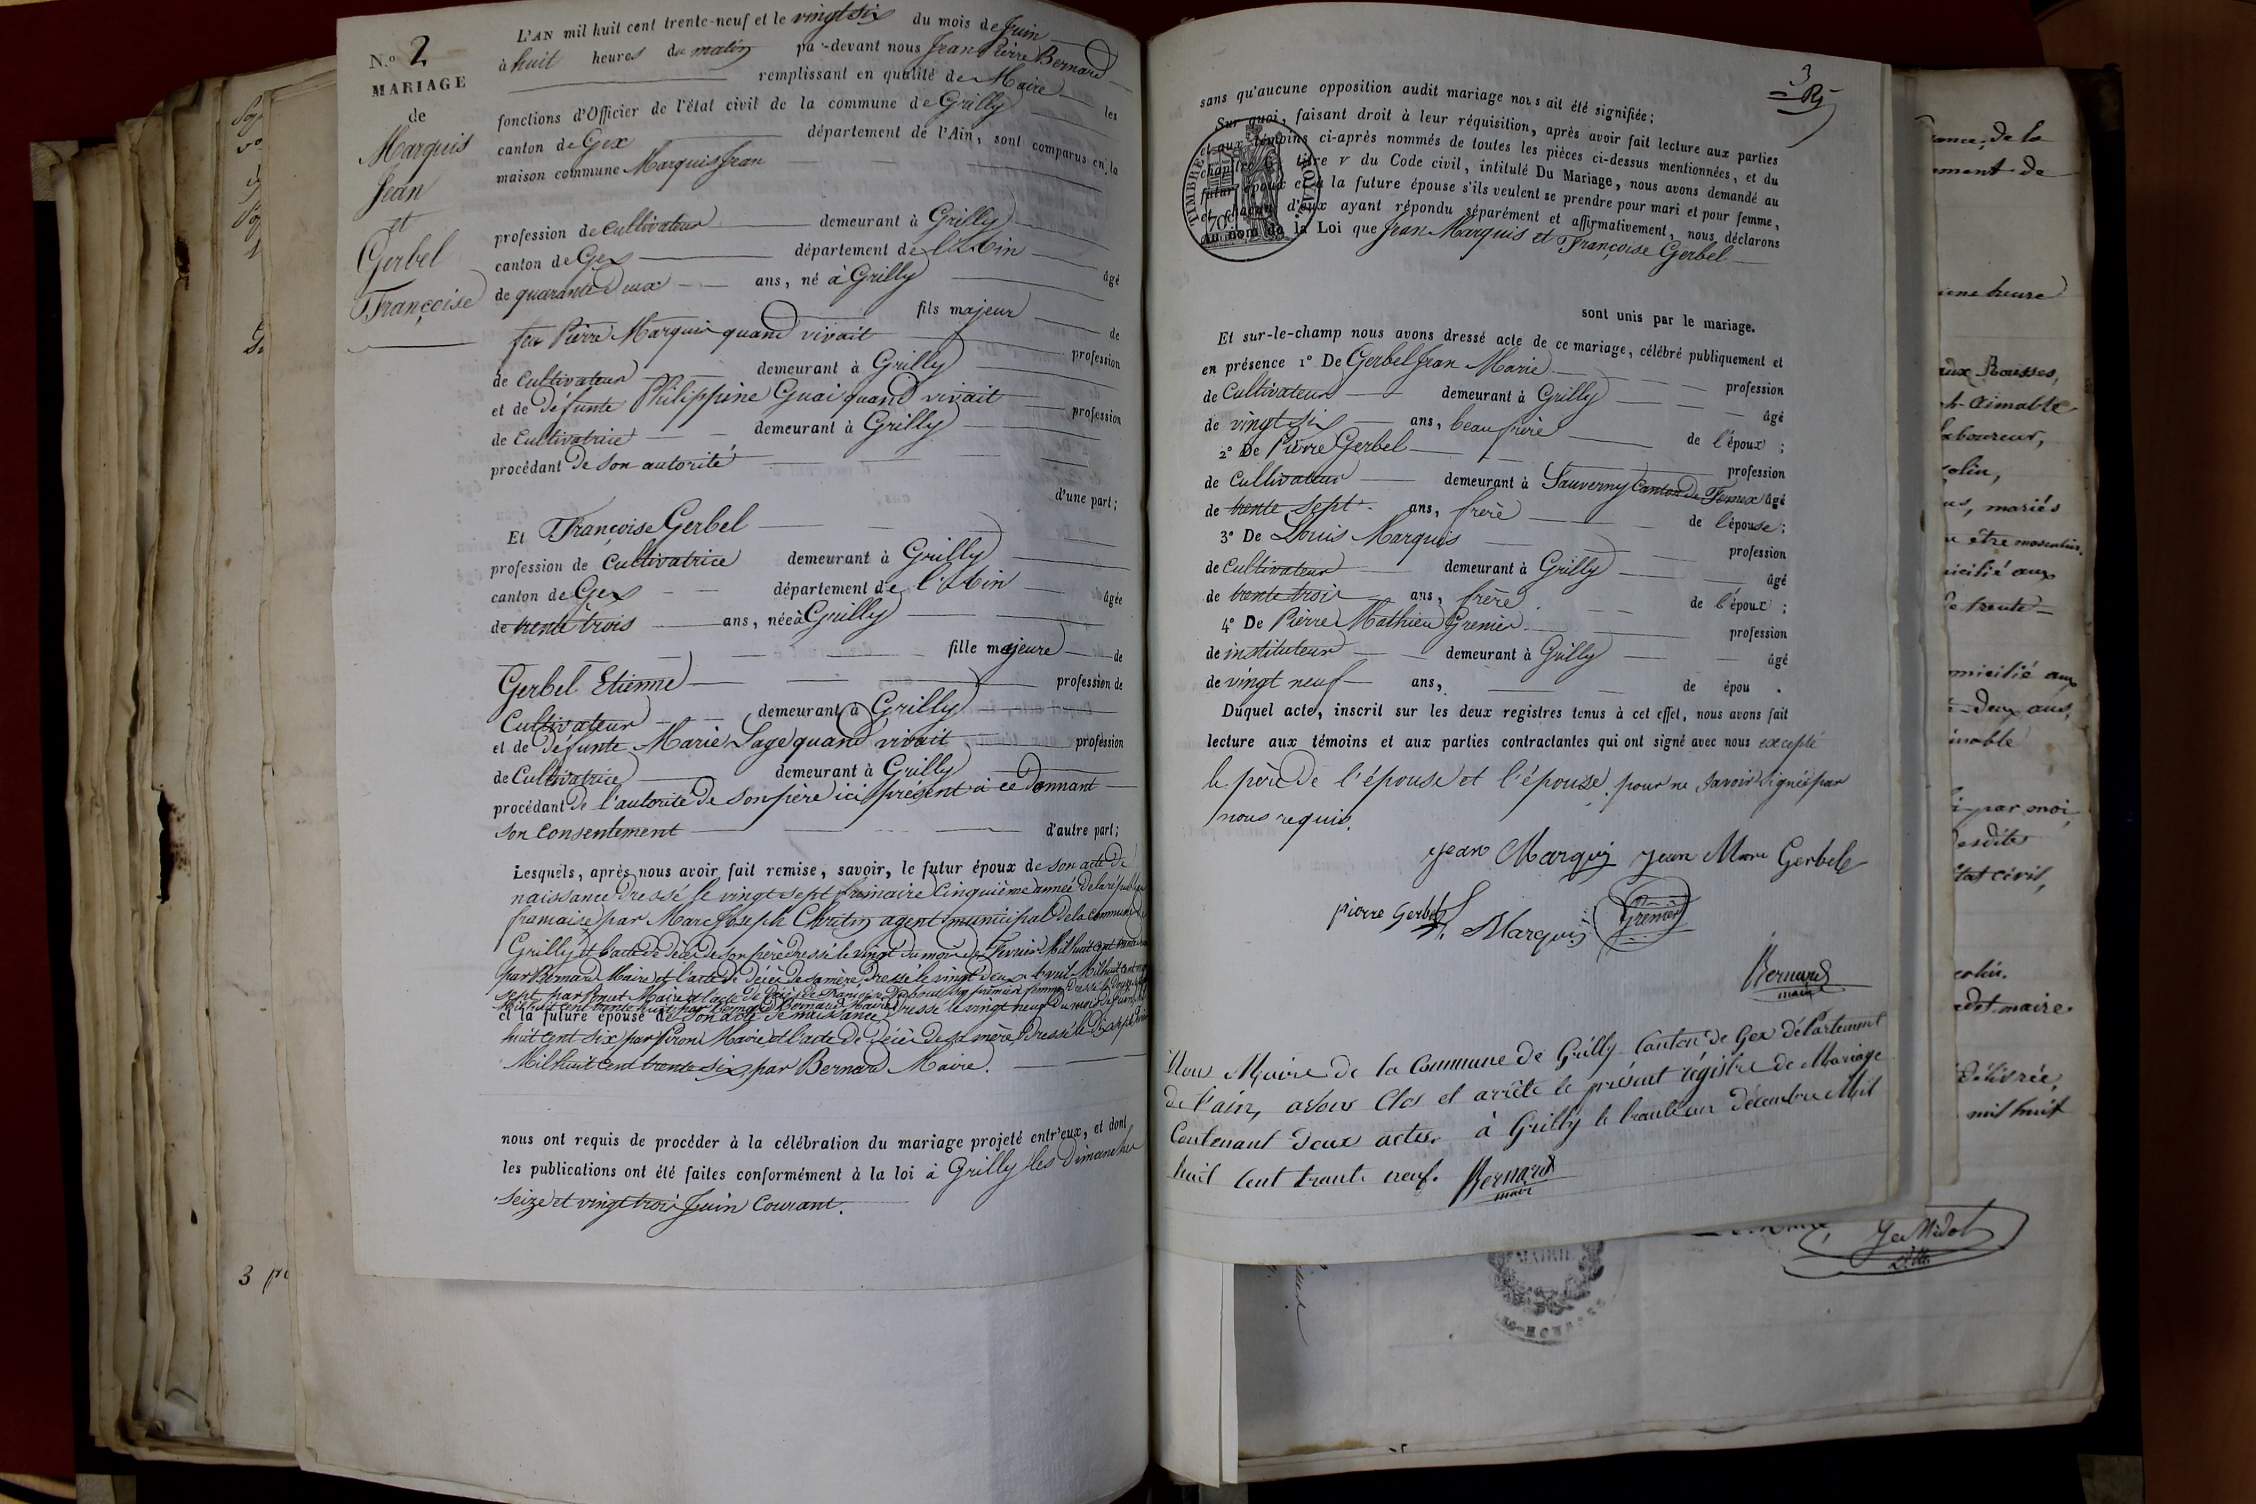 N.º 2
MARIAGE
de
Marquis
Jean
et
Gerbel
Françoise
L'AN mil huit cent trente-neuf et le vingt six du mois de Juin
à huit heures du matin par-devant nous Jean Pierre Bernard
remplissant en qualité de Maire les
fonctions d'Officier de l'état civil de la commune de Grilly
canton de Gex département de l'Ain, sont comparus en la
maison commune Marquis Jean
profession de Cultivateur demeurant à Grilly
canton de Gex département de l'Ain âgé
de quarante Deux ans, né à Grilly
fils majeur de
feu Pierre Marquis quand vivait profession
de Cultivateur demeurant à Grilly
et de défunte Philippine Guai quand vivait profession
de Cultivatrice demeurant à Grilly
procédant De son autorité
d'une part;
Et Françoise Gerbel
profession de Cultivatrice demeurant à Grilly
canton de Gex département de l'Ain âgée
de trente trois ans, née à Grilly
fille majeure de
Gerbel Etienne profession de
Cultivateur demeurant à Grilly
et de défunte Marie Sage quand vivait profession
de Cultivatrice demeurant à Grilly
procédant De l'autorité De son père ici présent à ce Donnant
son Consentement d'autre part;
Lesquels, après nous avoir fait remise, savoir, le futur époux de son acte De
naissance Dressé le vingt sept frimaire Cinquième année De la république
francaise par Marc Joseph agent municipal De la Commune de
Grilly et l'acte de décès De son père Dressé le vingt du mois de Fevrier Mil huit cent
par Bernard Maire et l'acte de Décès De sa mère Dressé le vingt Deux Avril Mil huit cent
sept par Maire et l'acte de Décès de Françoise sa première femme Dressé le
Mil huit cent trente huit par Bernard Maire
et la future épouse de son acte De naissance Dressé le vingt neuf Du mois De Juin Mil
huit cent six par Maire et l'acte De Décès De sa mère Dressé le Dix sept
Mil huit cent trente six par Bernard Maire.
nous ont requis de procéder à la célébration du mariage projeté entr'eux, et dont
les publications ont été faites conformément à la loi à Grilly les Dimanches
seize et vingt trois Juin Courant.
3
sans qu'aucune opposition audit mariage nous ait été signifiée;
Sur quoi, faisant droit à leur réquisition, après avoir fait lecture aux parties
et aux témoins ci-après nommés de toutes les pièces ci-dessus mentionnées, et du
chapitre titre V du Code civil, intitulé Du Mariage, nous avons demandé au
futur époux et à la future épouse s'ils veulent se prendre pour mari et pour femme,
et chacun d'eux ayant répondu séparément et affirmativement, nous déclarons
au nom de la Loi que Jean Marquis et Françoise Gerbel
TIMBRE ROYAL
sont unis par le mariage.
Et sur-le-champ nous avons dressé acte de ce mariage, célébré publiquement et
en présence 1º De Gerbel Jean Marie profession
de Cultivateur demeurant à Grilly âgé
de vingt six ans, beau frère de l'époux;
2º De Pierre Gerbel profession
de Cultivateur demeurant à Sauverny Canton De Fernex âgé
de trente sept ans, frère de l'épouse;
3º De Louis Marquis profession
de Cultivateur demeurant à Grilly âgé
de trente trois ans, frère de l'époux;
4º De Pierre Mathieu Grenier profession
de instituteur demeurant à Grilly âgé
de vingt neuf ans, de épou .
Duquel acte, inscrit sur les deux registres tenus à cet effet, nous avons fait
lecture aux témoins et aux parties contractantes qui ont signé avec nous excepté
le père De l'épouse et l'épouse pour ne savoir signer par
nous requis.
Jean Marquis Jean Marie Gerbel
pierre Gerbel L. Marquis Grenier
Bernard
maire
Nous Maire de la Commune de Grilly Canton de Gex département
de l'ain, avons Clos et arrêté le présent régistre de Mariage
Contenant deux actes. à Grilly le trente un décembre Mil
huit cent trente neuf. Bernard
maire
ment de
une heure
Aimable
laboureur,
mariés
domicilié aux
de trente
domicilié aux
deux ans,
par moi
état civil,
adjt maire
délivrée,
mil huit
3
MAIRIE